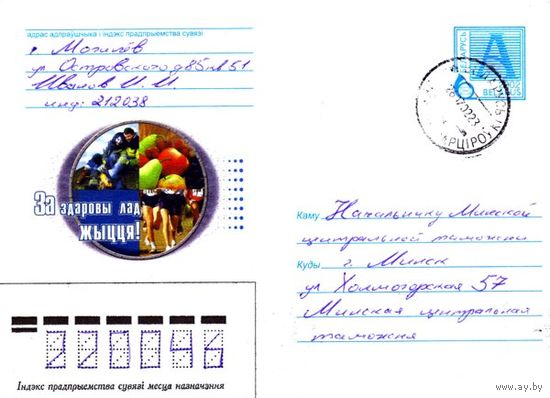 адрас адпраўшчыка і індэкс прадпрыемства сувязі
г. Могилёв
ул Островского д85 кв 51
Иванов И. И.
инд: 212038
БЕЛАРУСЬ
A
BELARUS
За здаровы лад
жыцця!
Каму Начальнику Минской
центральной таможни
Куды г. Минск
ул Холмогорская 57
Минская центральная
таможня
220046
Індэкс прадпрыемства сувязі месца назначэння
www.ay.by